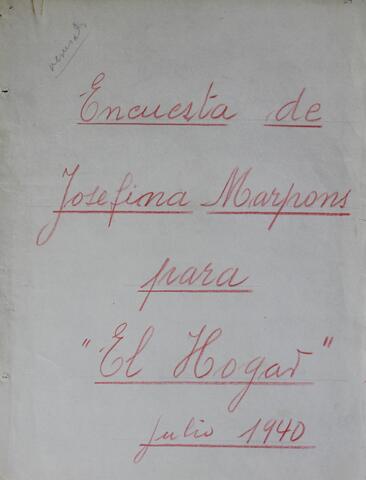 Encuesta de
Josefina Marpons
para
"El Hogar"
julio 1940